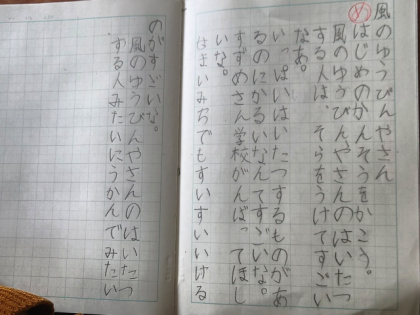 風のゆうびんやさん
めはじめのかんそうをかこう。
風のゆうびんやさんのはいたつ
する人は、そらをうけてすごい
なあ。
いっぱいはいたつするものがあ
るのにかるいなんてすごいな。
すずめさん学校がんばってほし
いな。
はまいみちでもすいすいいける
のがすごいな。
風のゆうびんやさんのはいたつ
する人みたいにうかんでみたい